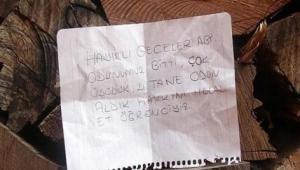 HAYIRLI GECELER ABİ
ODUNUMUZ BİTTİ, ÇOK
ÜŞÜDÜK, 2 TANE ODUN
ALDIK HAKKINI HELAL
ET ÖĞRENCİYİZ